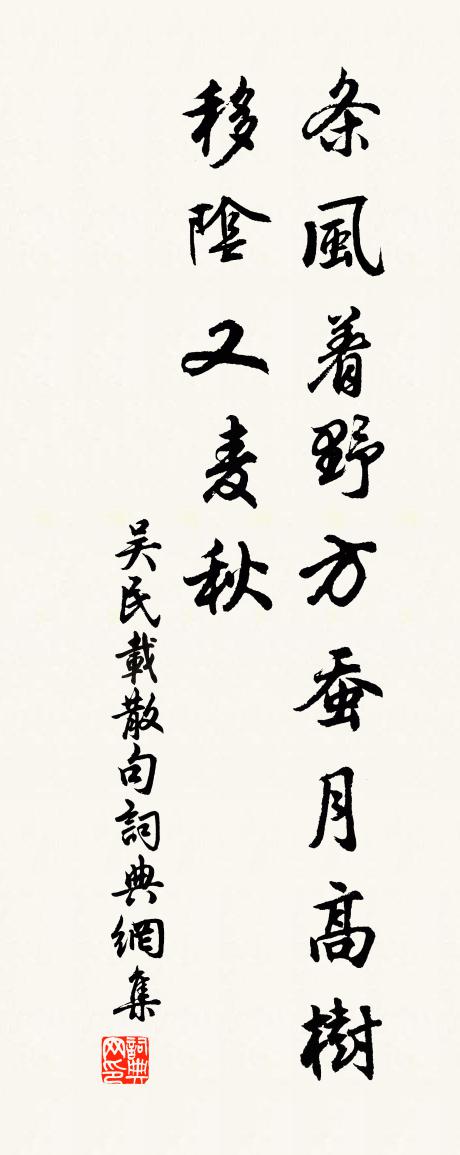 条風着野方蚕月高樹
移陰又麦秋
吴民載散句詞典網集
詞典网印